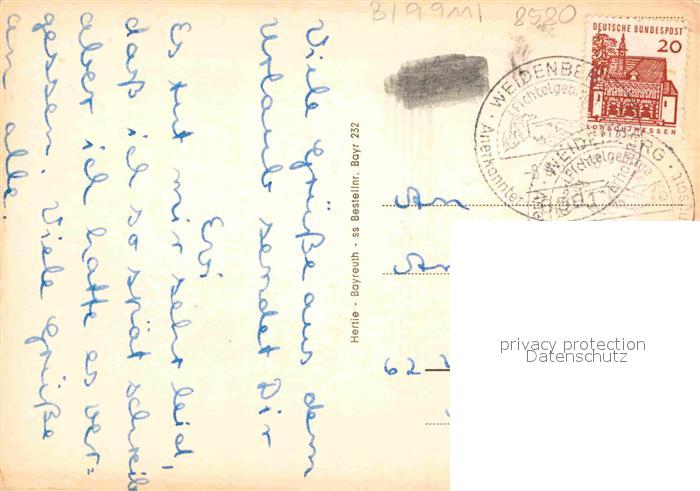 B/99M/ 8520
DEUTSCHE BUNDESPOST
20
LORSCH/HESSEN
WEIDENBERG
Fichtelgebirge
Anerkannter
WEIDENBERG
Fichtelgebirge
8581
Viele Grüße aus dem
Urlaub sendet Dir
Evi
Es tut mir sehr leid,
daß ich so spät schreib
aber ich hatte es ver=
gessen. Viele Grüße
an alle.
Hertie - Bayreuth - ss Bestellnr. Bayr 232
An
62
privacy protection
Datenschutz